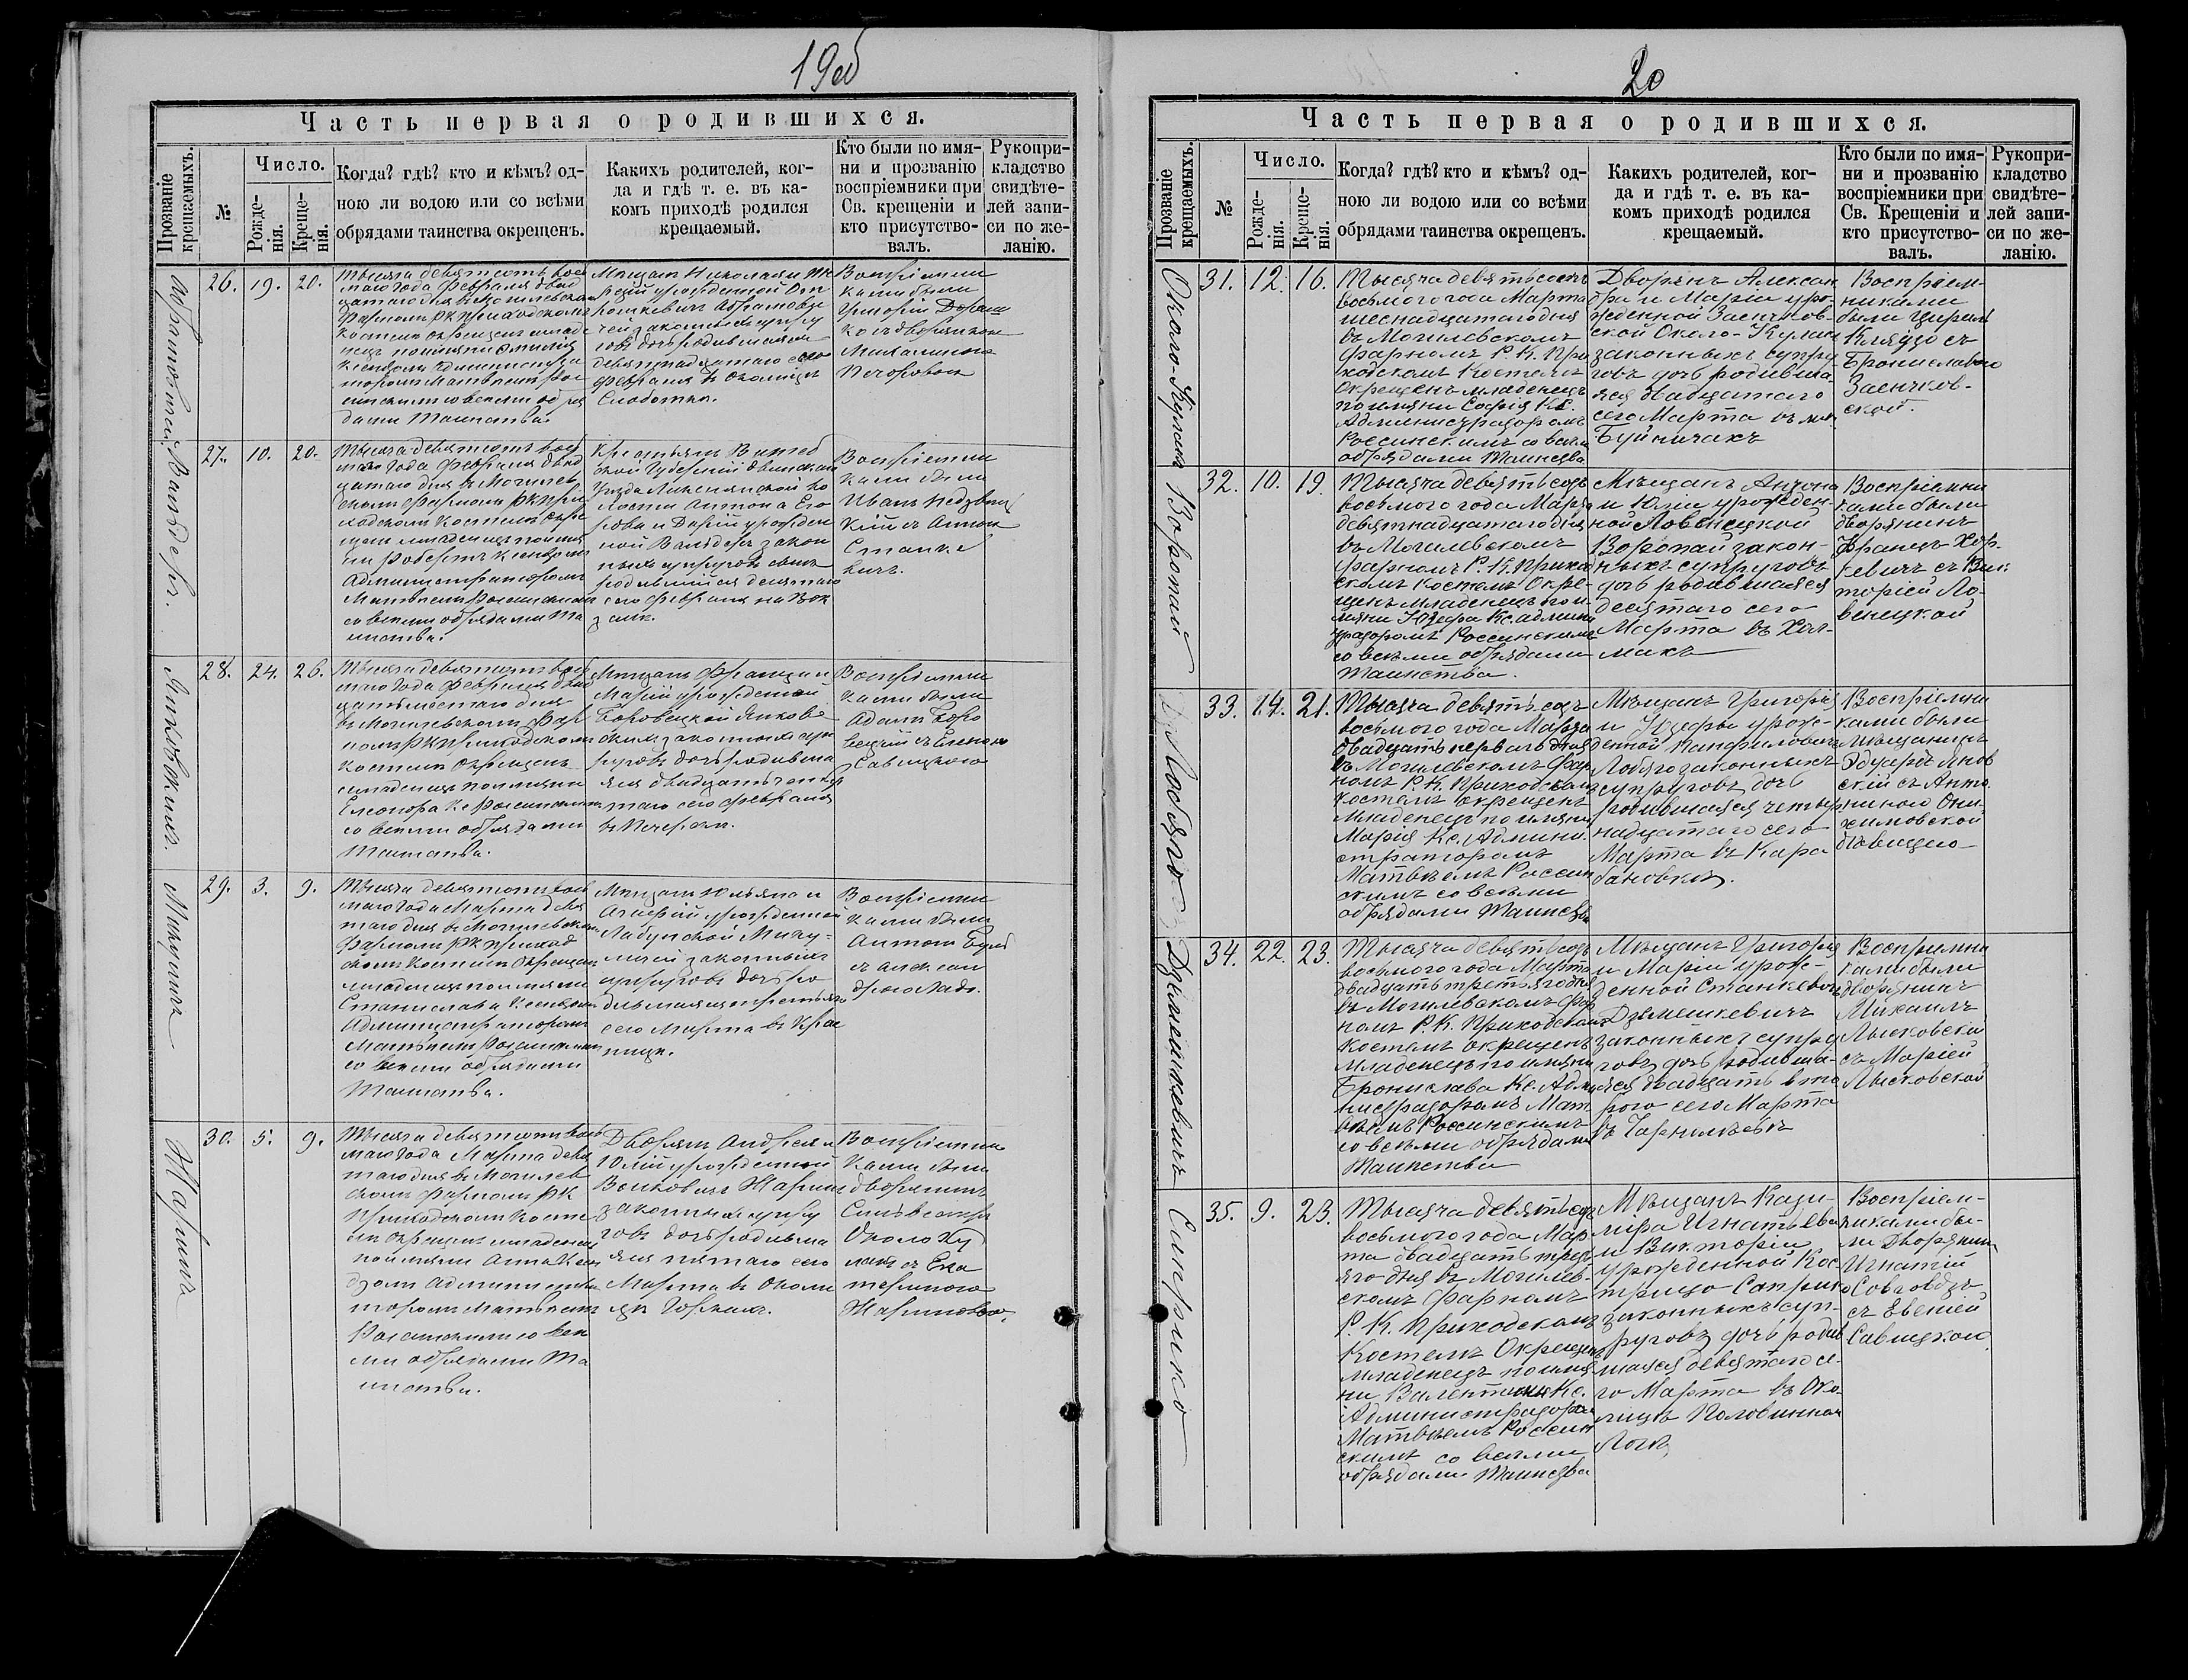 19об
Часть первая о родившихся.
Прозваніе крещаемыхъ.
№
Число.
Рожде-
нія.
Креще-
нія.
Когда? гдѣ? кто и кѣмъ? од-
ною ли водою или со всѣми
обрядами таинства окрещенъ.
Какихъ родителей, ког-
да и гдѣ т. е. въ ка-
комъ приходѣ родился
крещаемый.
Кто были по имя-
ни и прозванію
воспріемники при
Св. крещеніи и
кто присутство-
валъ.
Рукопри-
кладство
свидѣте-
лей запи-
си по же-
ланію.
26. 19. 20.
Тысяча девятьсотъ вось
маго года Февраля двад
цатаго дня въ Могилевскомъ
Фарномъ РК Приходскомъ
Костелѣ окрещенъ младе
нецъ по имяни
Ксендзомъ Администра
торомъ Матвѣемъ Рос
синскимъ со всѣми обря
дами Таинства.
законныхъ супру
говъ дочь родившаяся
девятнадцатаго сего
Февраля
Воспріемни
ками были
Григорій
27. 10. 20.
Тысяча девятьсотъ вось
маго года Февраля двад
цатаго дня въ Могилев
скомъ Фарномъ РК При
ходскомъ Костелѣ Окре
щенъ младенецъ по имя
ни Робертъ Ксендзомъ
Администраторомъ
Матвѣемъ Россинскимъ
со всѣми обрядами Та
инства.
Крестьянъ Витеб
ской Губерніи Двинскаго
Уѣзда
лости Антона Его
рова и Даріи урожден
ной Вальдеръ закон
ныхъ супруговъ сынъ
родившійся десятаго
сего Февраля на Вок
залѣ.
Воспріемни
ками были
Иванъ
кій съ Анною
Станке
вичъ.
Янковскихъ.
28. 24. 26.
Тысяча девятьсотъ вось
маго года Февраля двад
цать шестаго дня
въ Могилевскомъ Фар
номъ РК Приходскомъ
Костелѣ Окрещенъ
младенецъ по имяни
Елеонора Кс Россинскимъ
со всѣми обрядами
Таинства.
Мещанъ Франца и
Маріи урожденной
Боровецкой Янков
скихъ законныхъ суп
руговъ дочь родивша
яся двадцать четвер
таго сего Февраля
въ Печерскѣ.
Воспріемни
ками были
Адамъ Боро
вецкій съ Еленою
Савицкою
Микуличъ
29. 3. 9.
Тысяча девятьсотъ вось
маго года Марта девя
таго дня въ Могилевскомъ
Фарномъ РК Приход
скомъ Костелѣ Окрещенъ
младенецъ по имяни
Станислава Ксендзомъ
Администраторомъ
Матвѣемъ Россинскимъ
со всѣми обрядами
Таинства.
Мещанъ Юльяна и
урожденной
Мику-
личей законныхъ
супруговъ дочь ро
дившаяся третьяго
сего Марта въ
Воспріемни
ками были
Антонъ
съ Алексан
дрою
Жаринъ
30. 5. 9.
Тысяча девятьсотъ вось
маго года Марта девя
таго дня въ Могилев
скомъ Фарномъ РК
Приходскомъ Косте
лѣ Окрещенъ младенецъ
по имяни Анна Ксен
дзомъ Администра
торомъ Матвѣемъ
Россинскимъ со всѣ
ми обрядами Та
инства.
Дворянъ Андрея и
Юліи урожденной
Волковичъ Жаринъ
законныхъ супру
говъ дочь родивша
яся пятаго сего
Марта въ Околи
цѣ Горкахъ.
Воспріемни
ками были
дворянинъ
Сильвестръ
Около Ку
лакъ съ Ека
териною
Жариновою.
20
Часть первая о родившихся.
Прозваніе крещаемыхъ.
№
Число.
Рожде-
нія.
Креще-
нія.
Когда? гдѣ? кто и кѣмъ? од-
ною ли водою или со всѣми
обрядами таинства окрещенъ.
Какихъ родителей, ког-
да и гдѣ т. е. въ ка-
комъ приходѣ родился
крещаемый.
Кто были по имя-
ни и прозванію
воспріемники при
Св. Крещеніи и
кто присутство-
валъ.
Рукопри-
кладство
свидѣте-
лей запи-
си по же-
ланію.
Около-Кулакъ
31. 12. 16.
Тысяча девятьсотъ
восьмого года Марта
шеснадцатаго дня
въ Могилевскомъ
Фарномъ Р. К. При
ходскомъ Костелѣ
Окрещенъ младенецъ
по имяни Софія Кс.
Администраторомъ
Россинскимъ со всѣми
обрядами Таинства
Дворянъ Алексан
дра и Маріи уро-
жденной Заенчков-
ской Около-Кулакъ
законныхъ супру
говъ дочь родивша-
яся двадцатаго
сего Марта въ
Буйничахъ
Воспріем-
никами
были
съ
Брониславою
Заенчков-
ской.
Воропай
32. 10. 19.
Тысяча девятьсотъ
восьмого года Марта
девятнадцатаго дня
въ Могилевскомъ
Фарномъ Р. К. Приход
скомъ Костелѣ Окре-
щенъ младенецъ по и-
мяни Юзефа Кс. Админи
траторомъ Россинскимъ
со всѣми обрядами
Таинства.
Мѣщанъ Антона
и Юліи урожден-
ной Ловенецкой
Воропай закон-
ныхъ супруговъ
дочь родившаяся
десятаго сего
Марта въ Хол-
махъ
Воспріемни
ками были
дворянинъ
Францъ
съ Вик
торіей Ло-
венецкой
Лобяго
33. 14. 21.
Тысяча девятьсотъ
восьмого года Марта
двадцать перваго дня
въ Могилевскомъ Фар
номъ Р. К. Приходскомъ
Костелѣ окрещенъ
Младенецъ по имяни
Марія Кс. Админи-
страторомъ
Матвѣемъ Россин
скимъ со всѣми
обрядами Таинства
Мѣщанъ Григорія
и Юзефы урож-
денной Панфиловичъ
Лобяго законныхъ
супруговъ дочь
родившаяся четыр
надцатаго сего
Марта въ Кара
бановкѣ.
Воспріемни
ками были
мѣщанинъ
Эдуардъ Янов
скій съ Анто-
ниною
девицею
Дземешкевичъ
34. 22. 23.
Тысяча девятьсотъ
восьмого года Марта
двадцать третьяго дня
въ Могилевскомъ Фар
номъ Р. К. Приходскомъ
Костелѣ окрещенъ
младенецъ по имяни
Бронислава Кс. Адми
нистраторомъ Мат
вѣемъ Россинскимъ
со всѣми обрядами
Таинства
Мѣщанъ Григорія
и Маріи урож-
денной Станкевичъ
Дземешкевичъ
законныхъ супру
говъ дочь родивша-
яся двадцать вто
рого сего Марта
въ
Воспріемни
ками были
дворянинъ
Михаилъ
Лысковскій
съ Маріей
Лысковской
Саприко
35. 9. 23.
Тысяча девятьсотъ
восьмого года Мар
та двадцать треть
яго дня въ Могилев-
скомъ Фарномъ
Р. К. Приходскомъ
Костелѣ Окрещенъ
младенецъ по имя
ни Валентина Кс.
Администраторомъ
Матвѣемъ Россин
скимъ со всѣми
обрядами Таинства
Мѣщанъ Кази-
мира Игнатьева
и Викторіи
урожденной Кос-
трицо Саприко
законныхъ суп-
руговъ дочь родив
шаяся девятаго се-
го Марта въ Око-
лицѣ Половинномъ
Логѣ
Воспріем-
никами бы-
ли Дворянинъ
Игнатій
съ Евгеніей
Савицкою